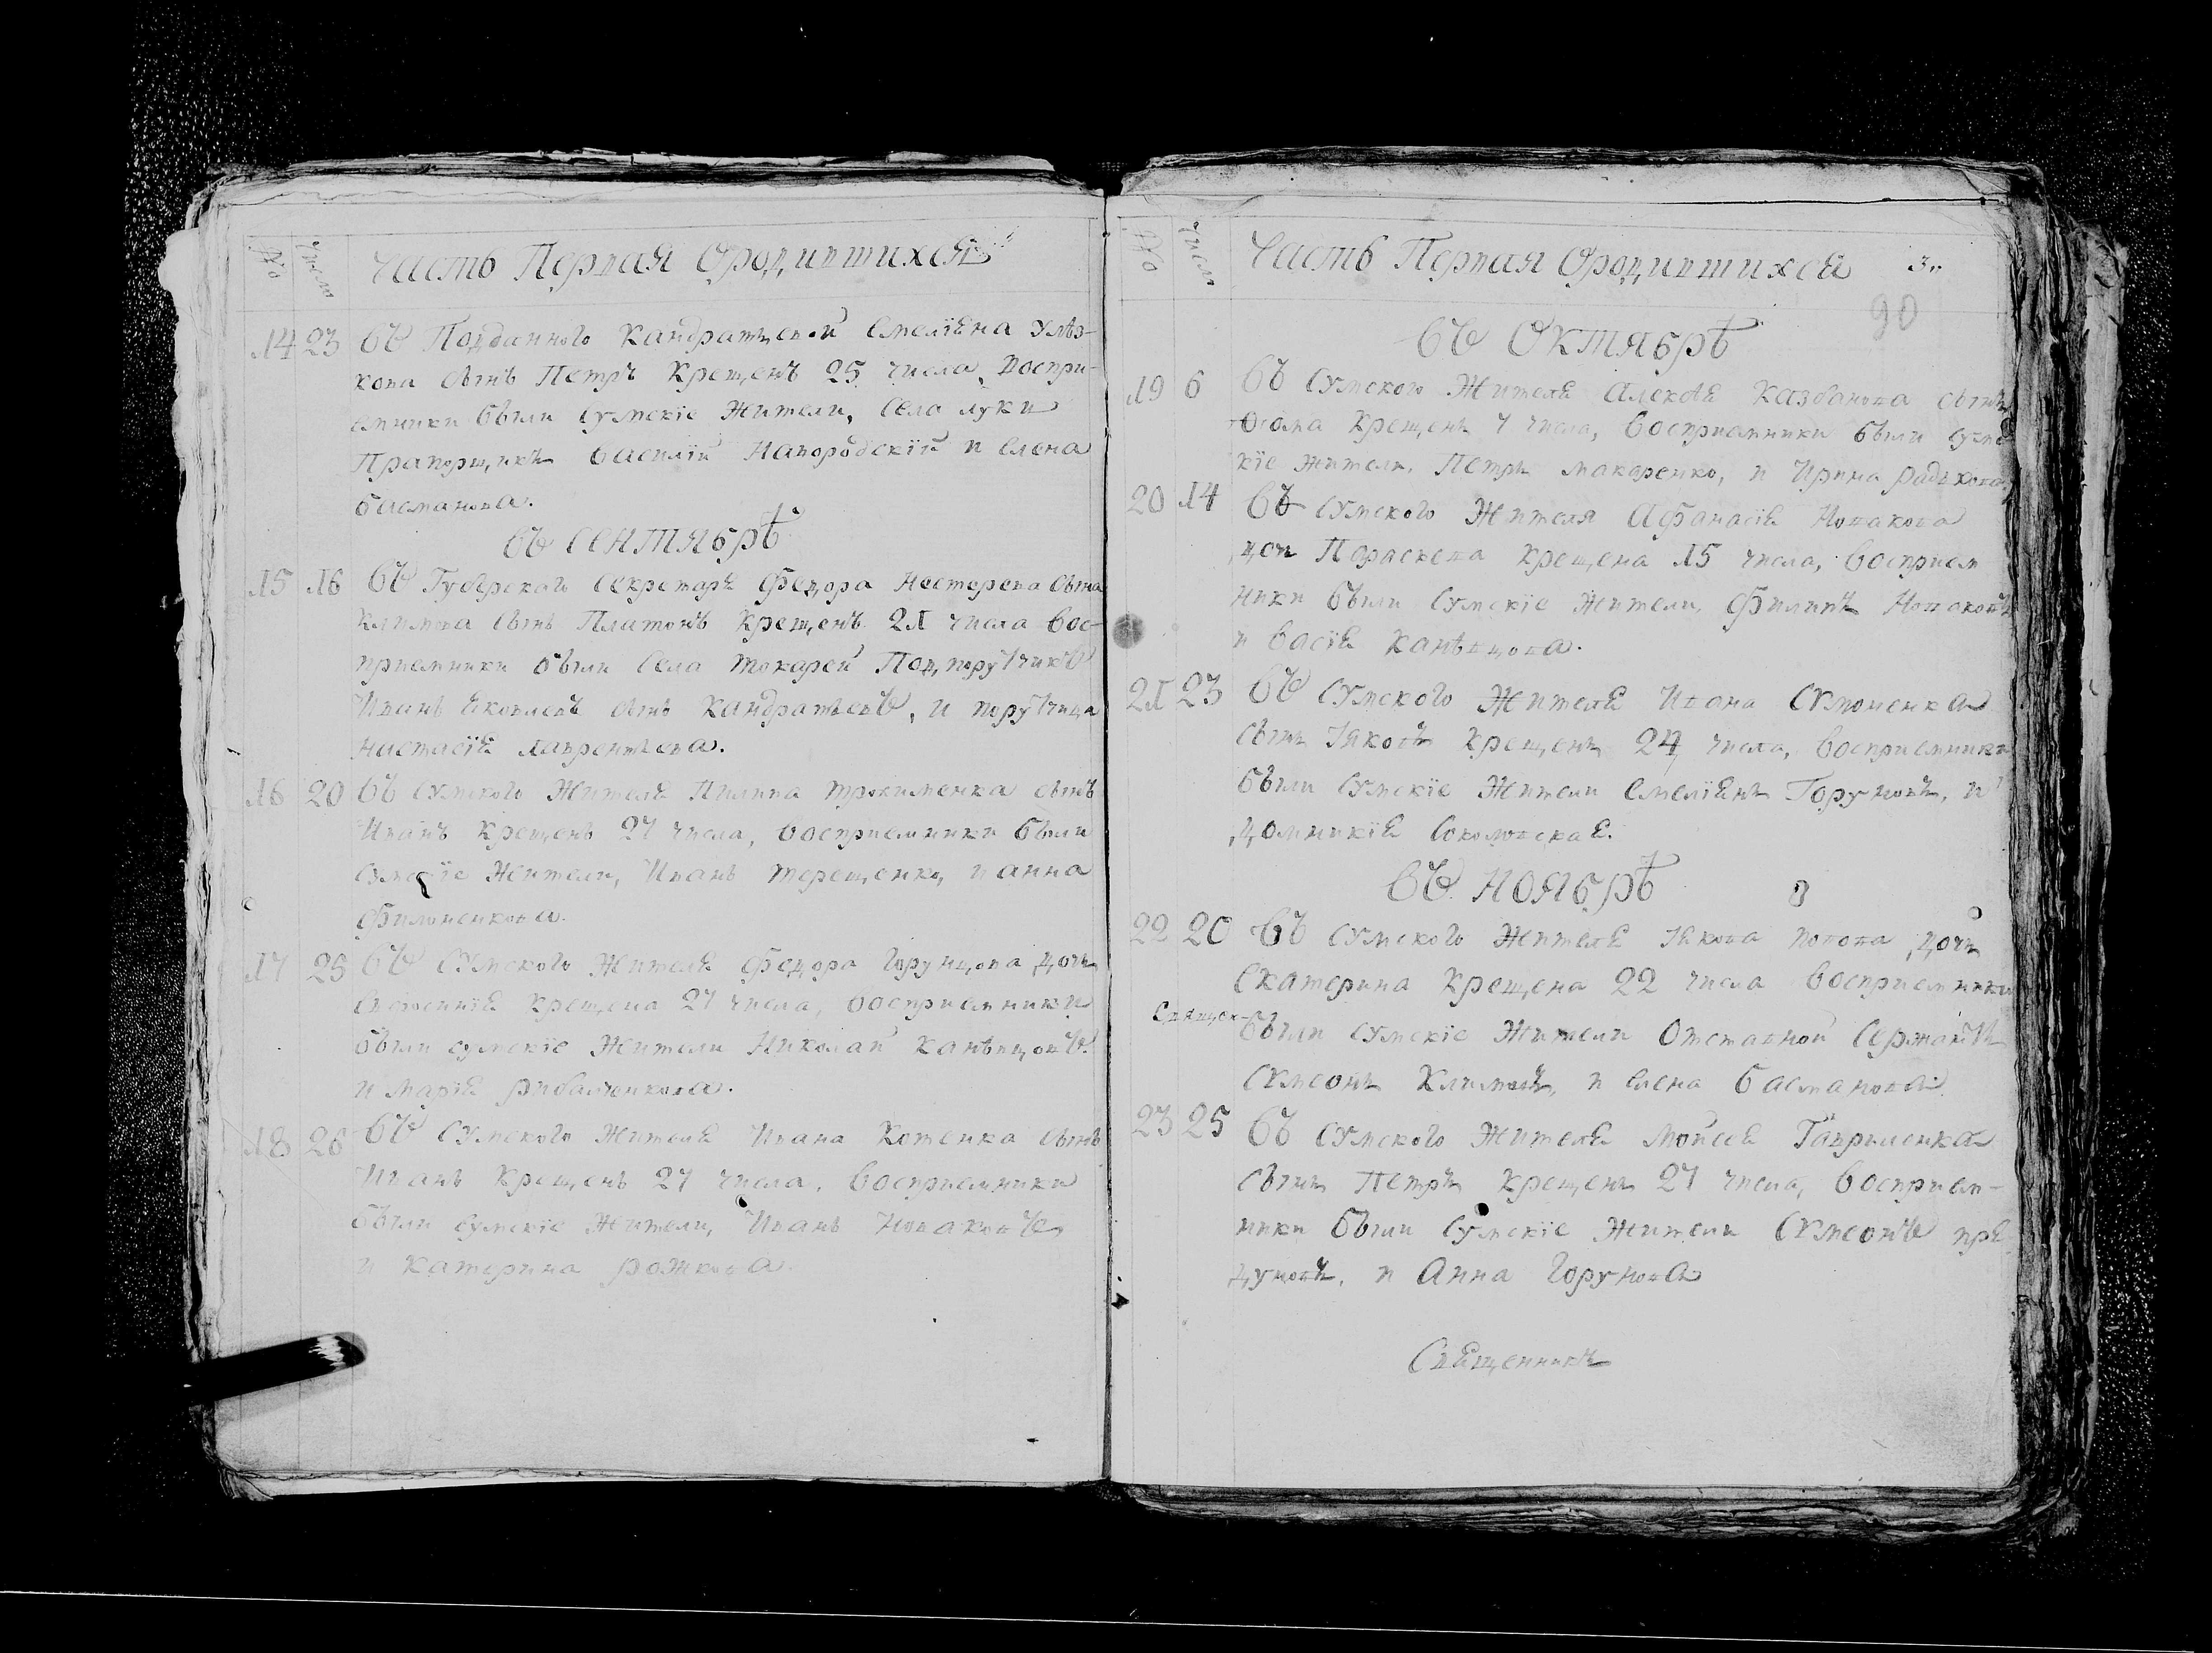 № числ Часть Первая Ородившихся
14 23 Въ Подданного Кандратьевой Емелїяна Улѣз-
кова сынъ Петръ Крещенъ 25 числа, воспри-
емники были сумскїе Жители, Села луки
Прапорщикъ Василїй Нагородскїй и елена
басманова.
Въ Сентябрѣ
15 16 Въ Губерскаго Секретаря Федора Нестерова сына
климова сынъ Платонъ Крещенъ 21 числа вос-
приемники были Села токарей Подпорутчикъ
Иванъ Яковлевъ сынъ Кандратьевъ, и порутчица
настасїя лаврентьева.
16 20 Въ Сумского Жителя Пилипа трохименка сынъ
Иванъ Крещенъ 27 числа, восприемники были
Сумскїе Жители, Иванъ терещенко, и анна
филоненкова.
17 25 Въ Сумского Жителя Федора Горунцова дочь
Евфросинїя крещена 27 числа, восприемники
были сумскїе Жители Николай Канѣвцовъ
и Марїя рибалченкова.
18 26 Въ Сумского Жителя Ивана Котенка сынъ
Иванъ Крещенъ 27 числа, восприемники
были сумскїе Жители, Иванъ Новаковъ
и катерина рожкова.
№ числ Часть Первая Ородившихся 3
90
Въ Октябрѣ
19 6 Въ Сумского Жителя Алексѣя Казбанова сынъ
Фома Крещенъ 7 числа, восприемники были сумс
кїе жители, Петръ макаренко, и Ирина радькова
20 14 Въ Сумского Жителя Афанасїя Новакова
дочь Параскева крещена 15 числа, восприем
ники были Сумскїе Жители, филипъ Новаковъ
и васїя канѣвцова.
21 23 Въ Сумского Жителя Ивана Симоненка
сынъ Іяковъ крещенъ 24 числа, восприемники
были Сумскїе Жители Емелїянъ Горуновъ, и
домникїя Соколовская.
Въ Ноябрѣ
22 20 Въ Сумского Жителя Іякова попова дочь
Екатерина крещена 22 числа восприемники
Священ-
были Сумскїе Жители Отставной Сержантъ
Симеонъ Климовъ, и елена басманова
23 25 Въ Сумского Жителя Мойсея Гавриленка
сынъ Петръ крещенъ 27 числа, восприем-
ники были Сумскїе жители Симеонъ пря
дуновъ, и Анна Горунова
Священникъ